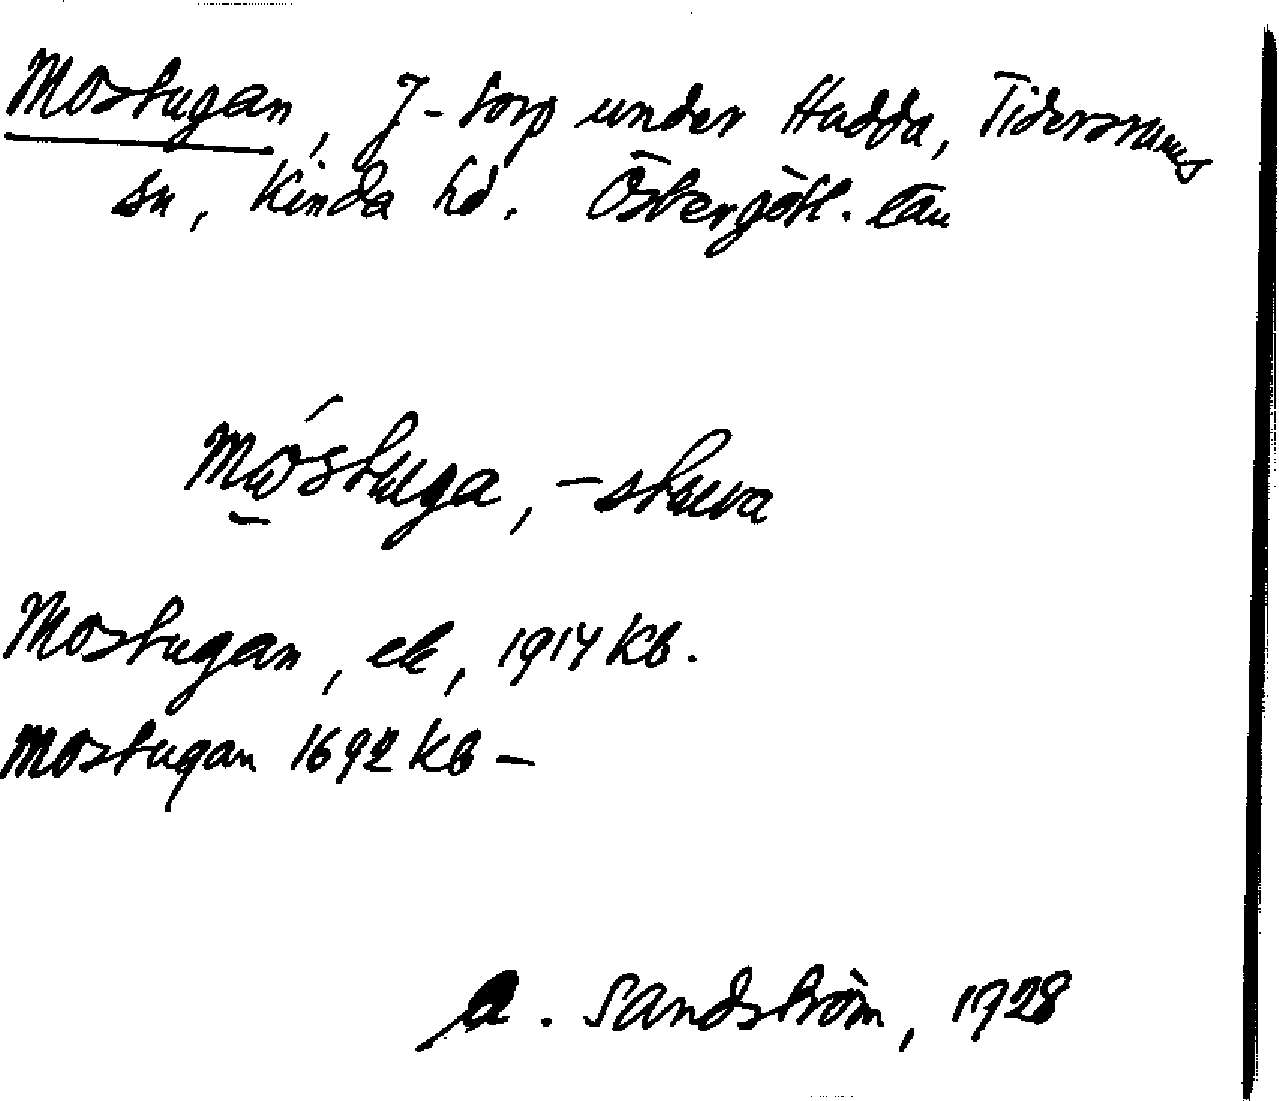 Mostugan, J-torp under Hadda, Tidersrums
sn, Kinda hd. Östergötl. län
móstuga, -stuva
Mostugan, ek, 1914 Kb.
Mostugan 1692 Kb -
A. Sandström, 1928